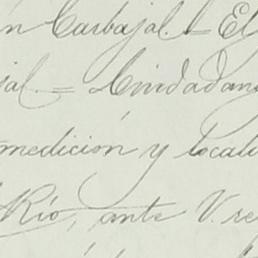 n Carbajal. = El
al. = Ciudadan
medicion y locali
Rio, ante V. re